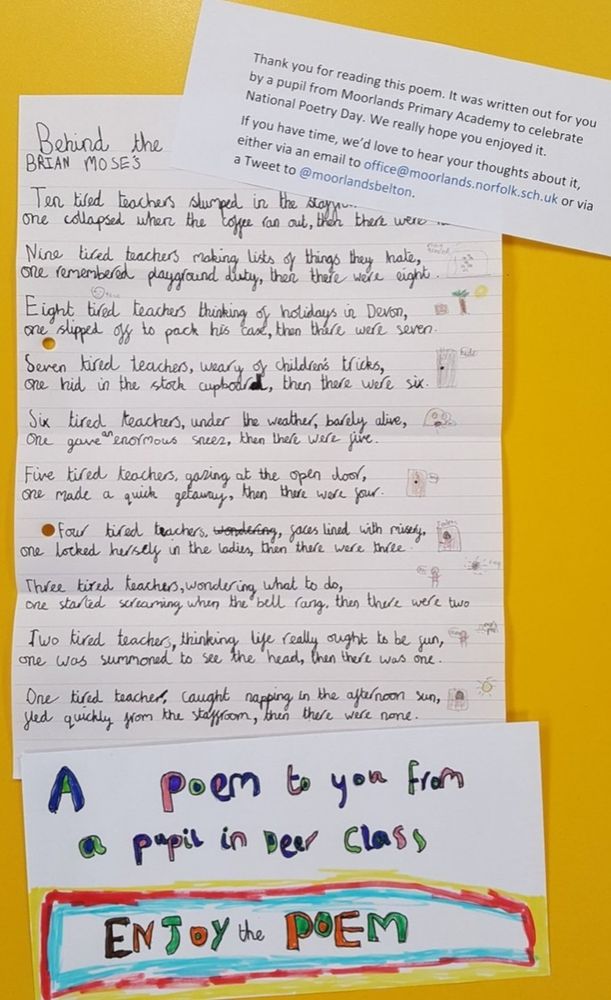 Thank you for reading this poem. It was written out for you
by a pupil from Moorlands Primary Academy to celebrate
National Poetry Day. We really hope you enjoyed it.
If you have time, we'd love to hear your thoughts about it,
either via an email to office@moorlands.norfolk.sch.uk or via
a Tweet to @moorlandsbelton.
Behind the
BRIAN MOSE'S
Ten tired teachers slumped in the
one collapsed when the coffee ran out, then there were
Nine tired teachers making lists of things they hate,
one remembered playground duty, then there were eight.
Eight tired teachers thinking of holidays in Devon,
one slipped off to pack his case, then there were seven.
Seven tired teachers, weary of children's tricks,
one hid in the stock cupboard, then there were six.
Six tired teachers, under the weather, barely alive,
One gave an enormous sneez, then there were five.
Five tired teachers, gazing at the open door,
one made a quick getaway, then there were four.
Four tired teachers, wondering, faces lined with misery,
one locked herself in the ladies, then there were three.
Three tired teachers, wondering what to do,
one started screaming when the bell rang, then there were two
Two tired teachers, thinking life really ought to be fun,
one was summoned to see the head, then there was one.
One tired teacher, caught napping in the afternoon sun,
fled quickly from the staffroom, then there were none.
A poem to you from
a pupil in Deer Class
ENJOY the POEM